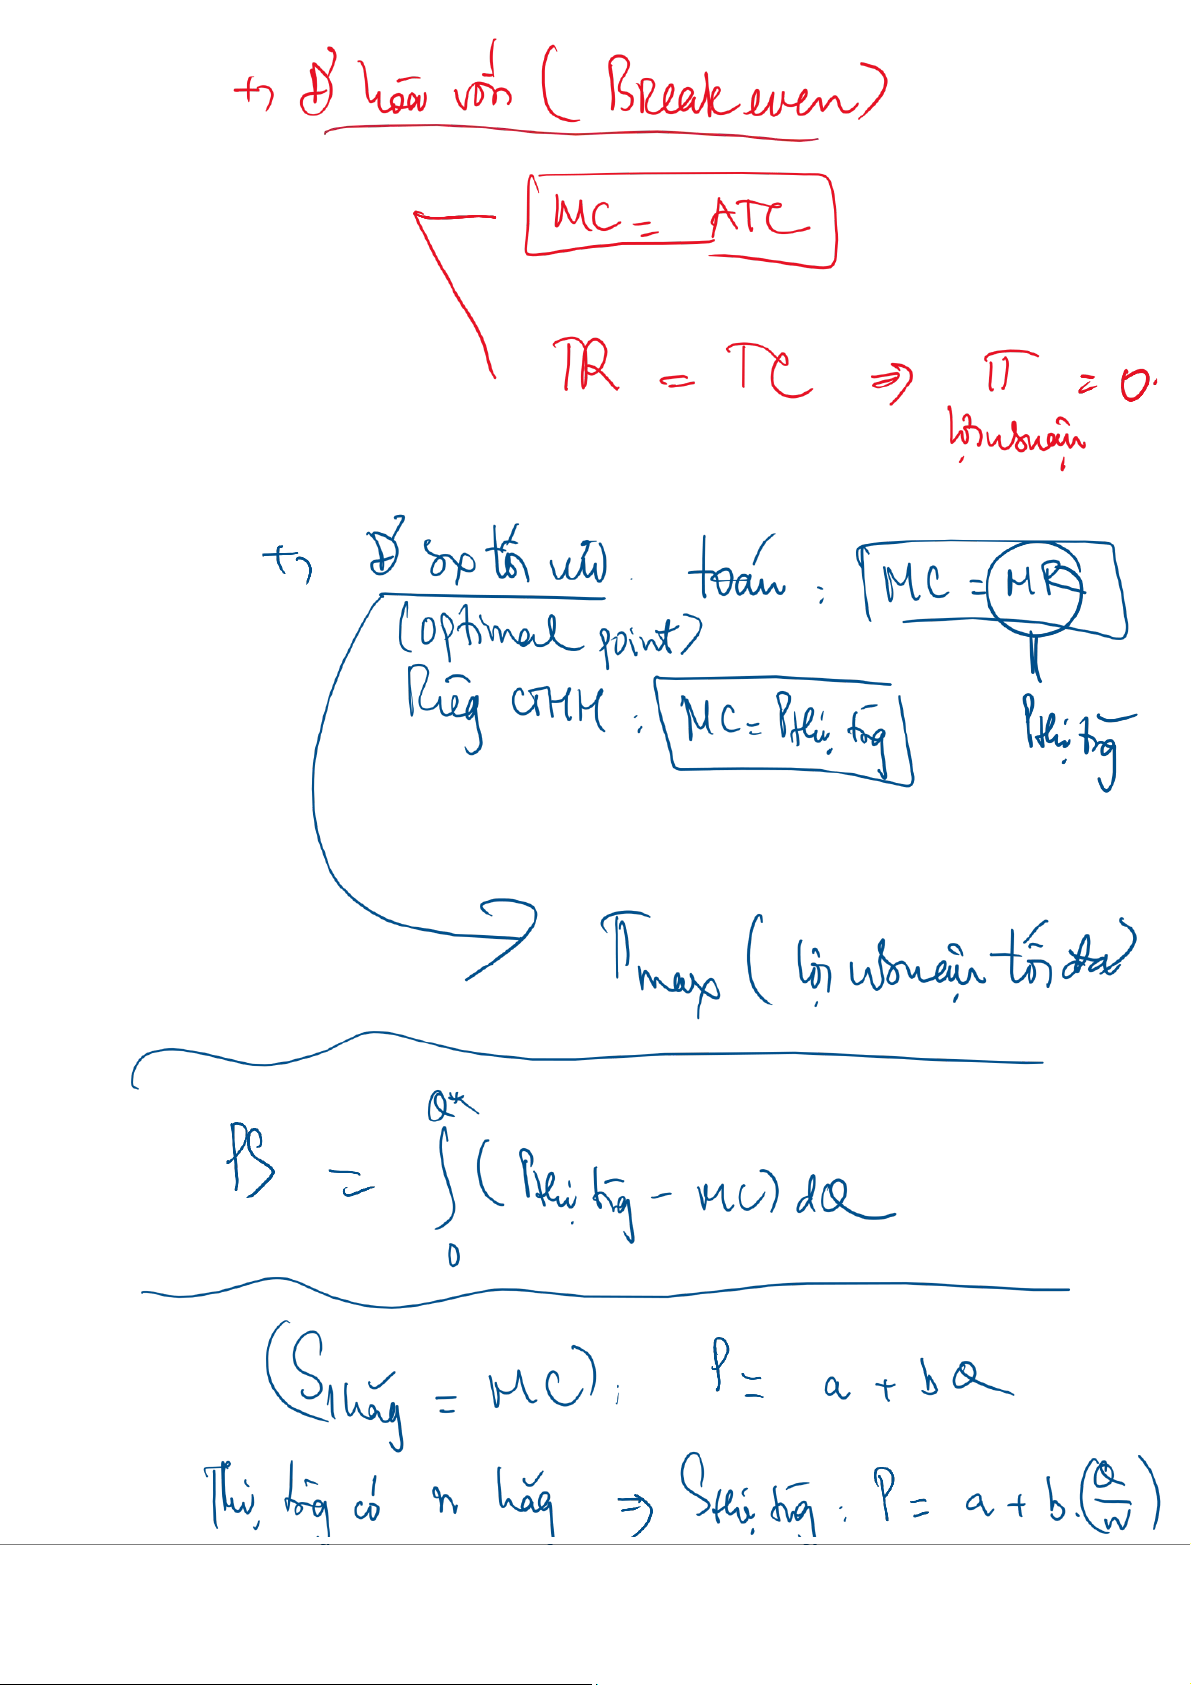 +, Đ' hòa vốn (Breakeven)
MC = ATC
TR = TC ⇒ π = 0.
lợi nhuận
+, Đ' sx tối ưu. toán: MC = MR
(optimal point)
Riêg CTHH: MC = Pthị trg Pthị trg
πmax (lợi nhuận tối đa)
PS = ∫₀^Q* (Pthị trg - MC) dQ
(S1hãg = MC): P = a + bQ
Thị trg có n hãg ⇒ Sthị trg: P = a + b.(Q/n)